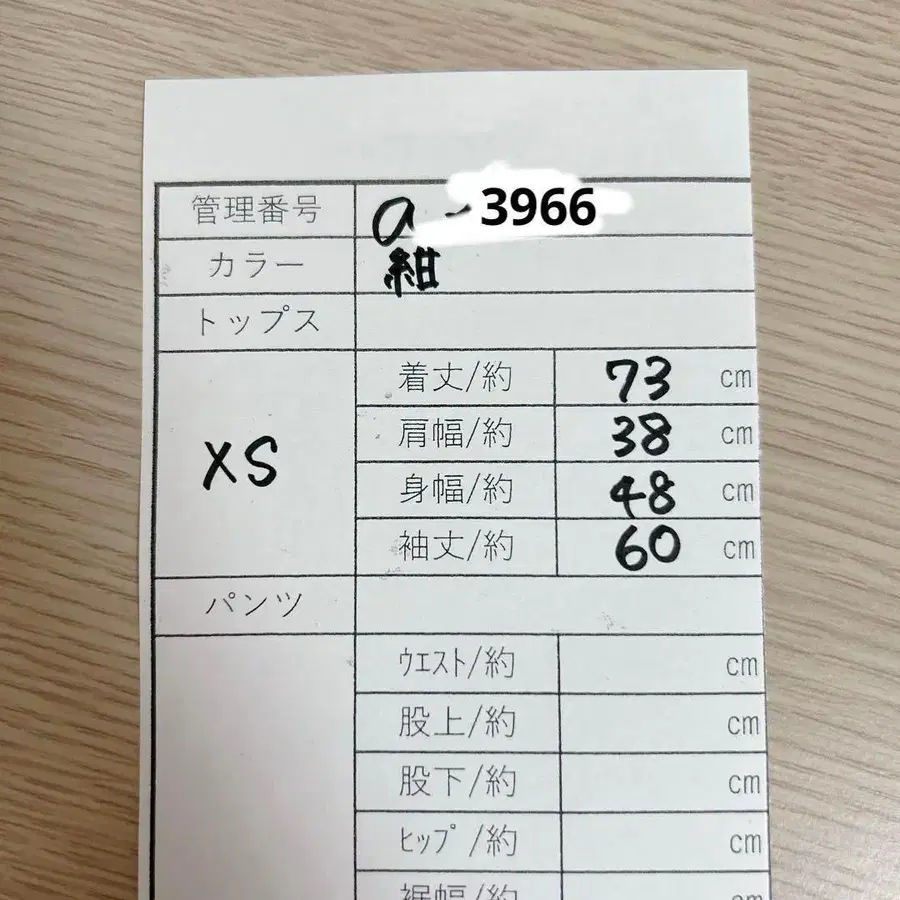 管理番号 a-3966
カラー 紺
トップス
XS
着丈/約 73 cm
肩幅/約 38 cm
身幅/約 48 cm
袖丈/約 60 cm
パンツ
ウエスト/約 cm
股上/約 cm
股下/約 cm
ヒップ/約 cm
裾幅/約 cm